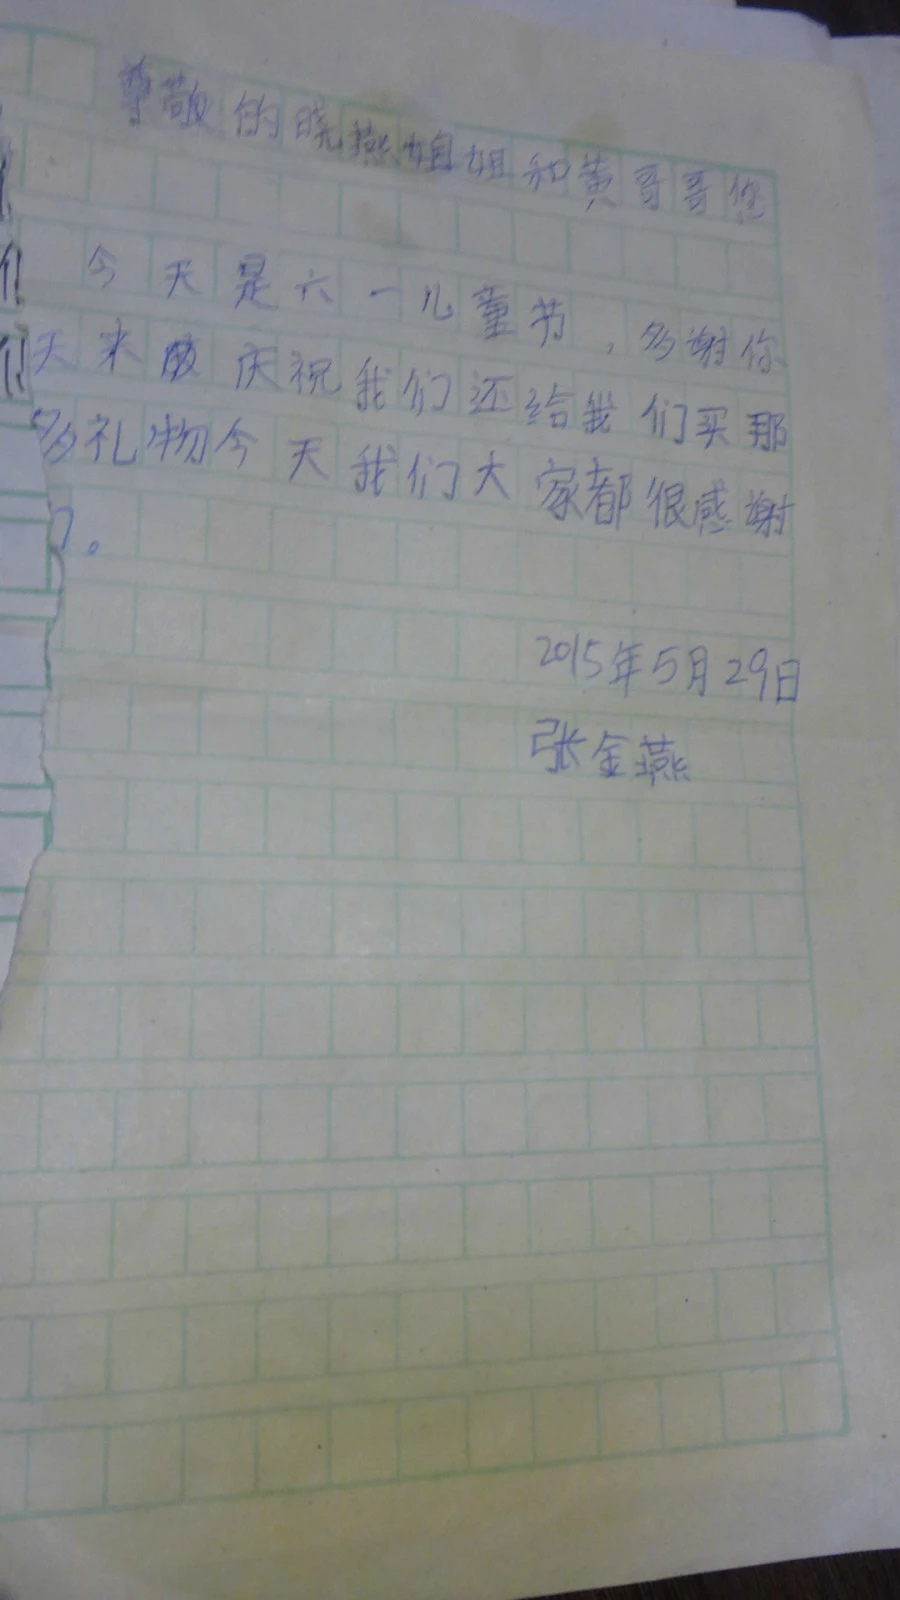 尊敬的晓燕姐姐和黄哥哥您
今天是六一儿童节，多谢你
天来 庆祝我们还给我们买那
多礼物今天我们大家都很感谢
。
2015年5月29日
张金燕
们
们